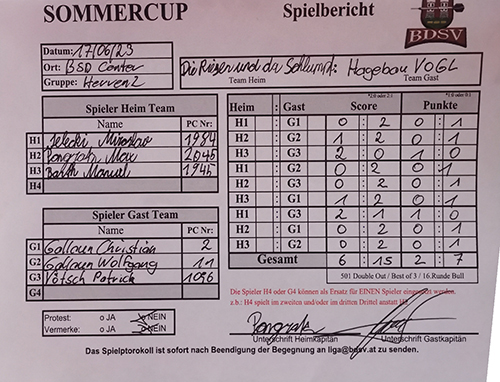 SOMMERCUP Spielbericht
BDSV
Datum: 17/06/23
Ort: BSD Center
Gruppe: Herren 2
Die Riesen und da Schlumpf : Hagebau VOGL
Team Heim Team Gast
Spieler Heim Team
Name PC Nr:
H1 Jeleski Miroslav 1984
H2 Pongratz Max 2045
H3 Barth Manuel 1945
H4
Spieler Gast Team
Name PC Nr:
G1 Gallaun Christian 2
G2 Gallaun Wolfgang 11
G3 Vötsch Patrick 1096
G4
Protest: o JA o NEIN
Vermerke: o JA o NEIN
*2:0 oder 2:1 *1:0 oder 0:1
Heim : Gast Score Punkte
H1 : G1 0 : 2 0 : 1
H2 : G2 1 : 2 0 : 1
H3 : G3 2 : 0 1 : 0
H1 : G2 0 : 2 0 : 1
H2 : G3 0 : 2 0 : 1
H3 : G1 1 : 2 0 : 1
H1 : G3 2 : 1 1 : 0
H2 : G1 0 : 2 0 : 1
H3 : G2 0 : 2 0 : 1
Gesamt 6 : 15 2 : 7
501 Double Out / Best of 3 / 16.Runde Bull
Die Spieler H4 oder G4 können als Ersatz für EINEN Spieler eingesetzt werden.
z.b.: H4 spielt im zweiten und/oder im dritten Drittel anstatt H2
Pongratz
Unterschrift Heimkapitän Unterschrift Gastkapitän
Das Spielprotokoll ist sofort nach Beendigung der Begegnung an liga@bdsv.at zu senden.